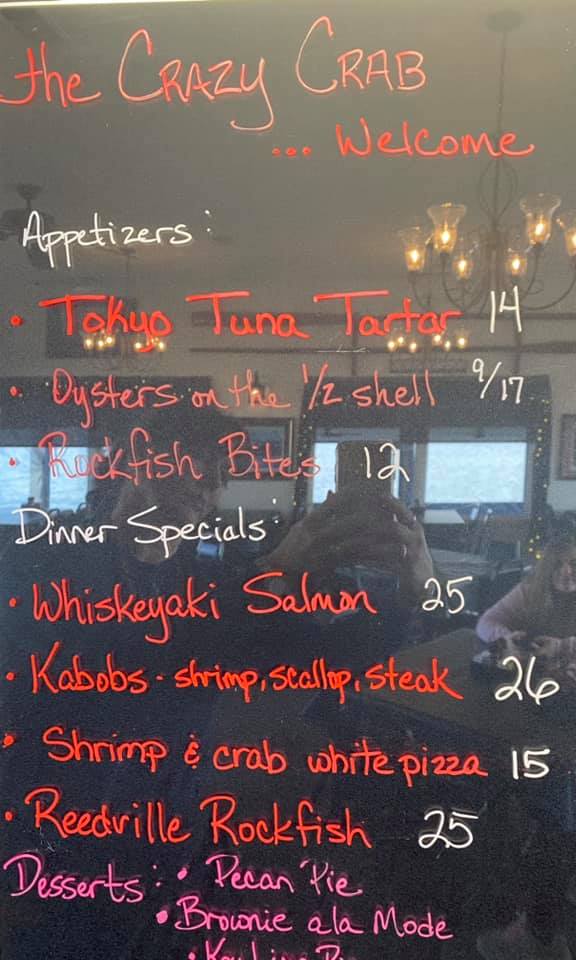 the CRAZY CRAB
... Welcome
Appetizers:
• Tokyo Tuna Tartar 14
• Oysters on the 1/2 shell 9/17
• Rockfish Bites 12
Dinner Specials:
• Whiskeyaki Salmon 25
• Kabobs - shrimp, scallop, steak 26
• Shrimp & crab white pizza 15
• Reedville Rockfish 25
Desserts: • Pecan Pie
• Brownie ala Mode
• Key Lime Pie